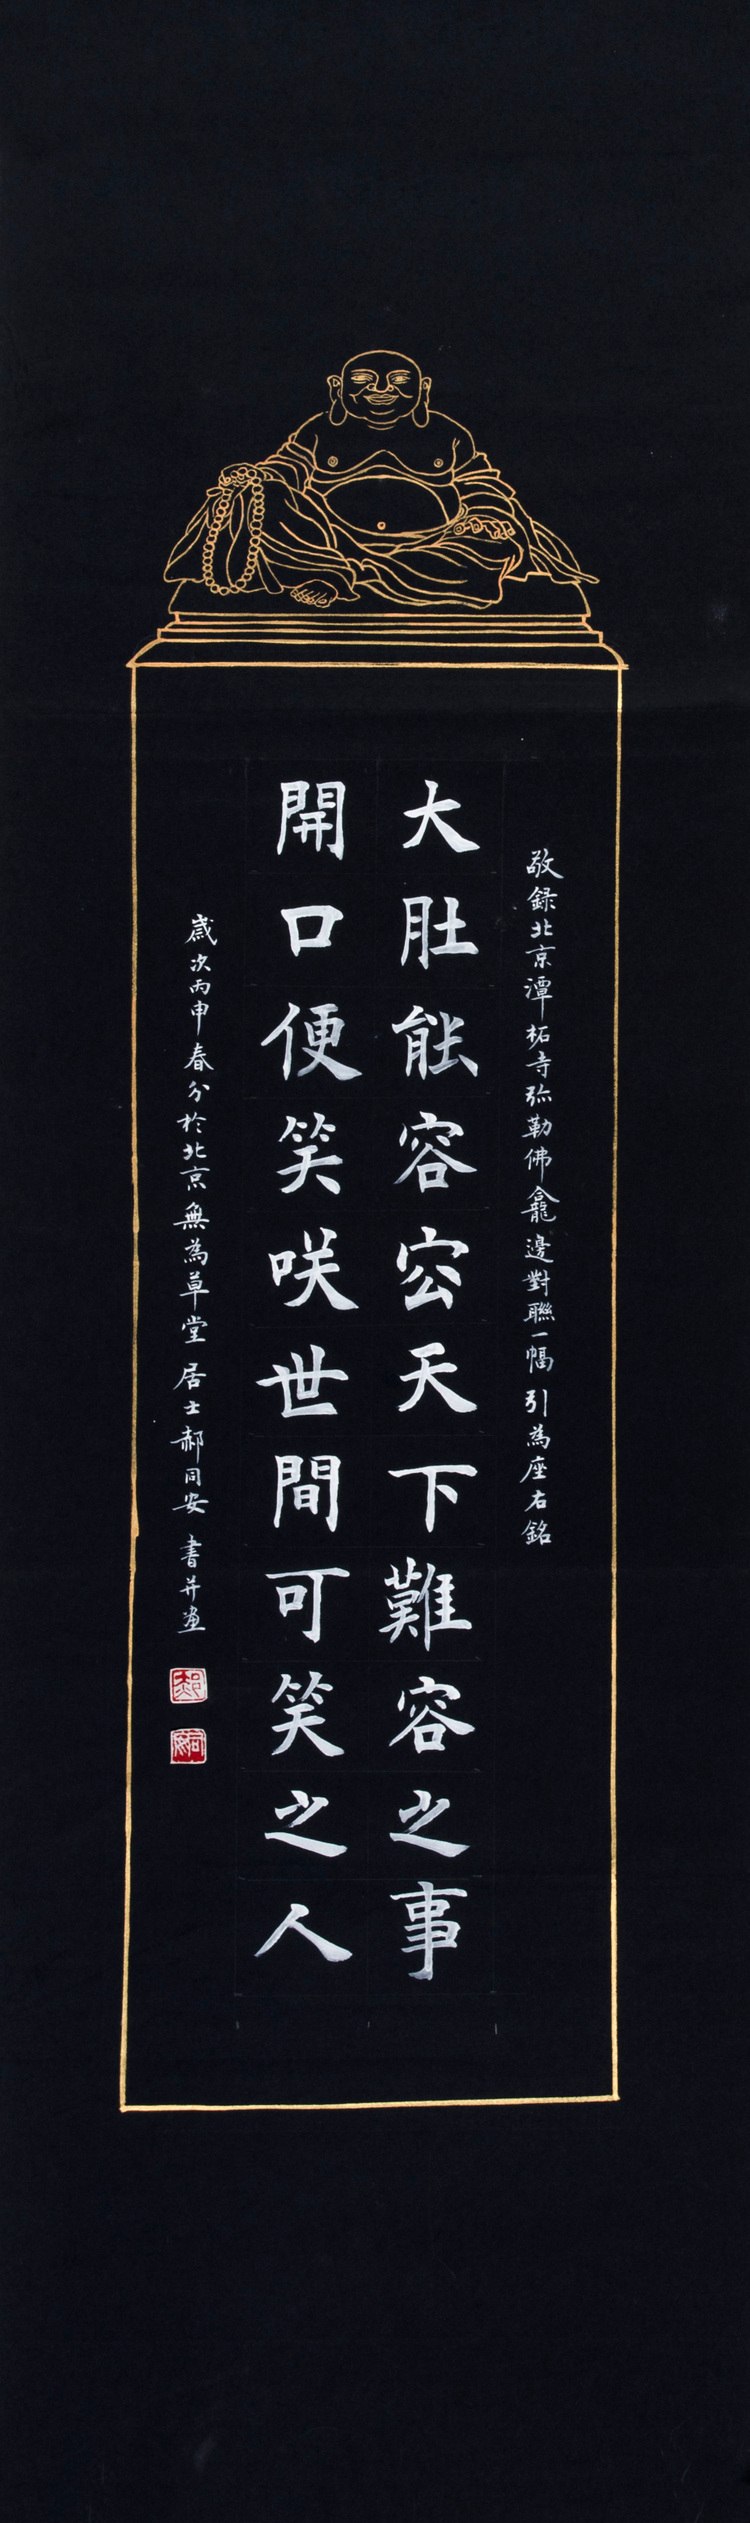 敬録北京潭柘寺弥勒佛龕邊對聯一幅引為座右銘
大肚能容容天下難容之事
開口便笑咲世間可笑之人
歲次丙申春分於北京無為草堂居士郝同安書并画
郝
同安